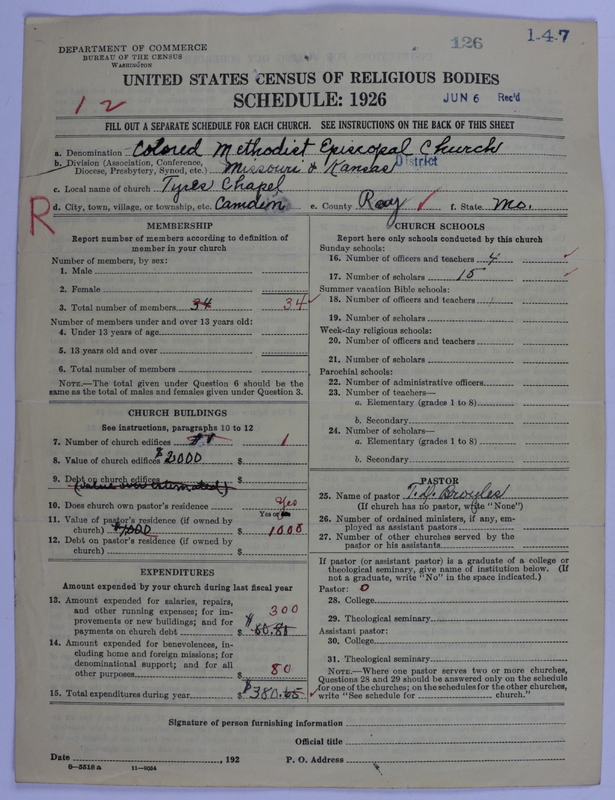 126
1-4-7
DEPARTMENT OF COMMERCE
BUREAU OF THE CENSUS
WASHINGTON
UNITED STATES CENSUS OF RELIGIOUS BODIES
SCHEDULE: 1926
JUN 6 Rec'd
12
FILL OUT A SEPARATE SCHEDULE FOR EACH CHURCH. SEE INSTRUCTIONS ON THE BACK OF THIS SHEET
a. Denomination Colored Methodist Episcopal Church
b. Division (Association, Conference, Diocese, Presbytery, Synod, etc.) Missouri & Kansas District
c. Local name of church Tyres Chapel
R
d. City, town, village, or township, etc. Camden e. County Ray f. State Mo.
MEMBERSHIP
Report number of members according to definition of
member in your church
Number of members, by sex:
1. Male
2. Female
3. Total number of members 34 34
Number of members under and over 13 years old:
4. Under 13 years of age
5. 13 years old and over
6. Total number of members
NOTE.—The total given under Question 6 should be the
same as the total of males and females given under Question 3.
CHURCH BUILDINGS
See instructions, paragraphs 10 to 12
7. Number of church edifices 1
8. Value of church edifices $2000 $
9. Debt on church edifices $
(Value over estimated)
10. Does church own pastor's residence Yes
Yes or No
11. Value of pastor's residence (if owned by
church) $1000 $ 1000
12. Debt on pastor's residence (if owned by
church) $
EXPENDITURES
Amount expended by your church during last fiscal year
13. Amount expended for salaries, repairs,
and other running expenses; for im-
provements or new buildings; and for
payments on church debt $ 300
14. Amount expended for benevolences, in-
cluding home and foreign missions; for
denominational support; and for all
other purposes $ 80
15. Total expenditures during year $ $380.65
CHURCH SCHOOLS
Report here only schools conducted by this church
Sunday schools:
16. Number of officers and teachers 4
17. Number of scholars 15
Summer vacation Bible schools:
18. Number of officers and teachers
19. Number of scholars
Week-day religious schools:
20. Number of officers and teachers
21. Number of scholars
Parochial schools:
22. Number of administrative officers
23. Number of teachers—
a. Elementary (grades 1 to 8)
b. Secondary
24. Number of scholars—
a. Elementary (grades 1 to 8)
b. Secondary
PASTOR
25. Name of pastor T. H. Broyles
(If church has no pastor, write "None")
26. Number of ordained ministers, if any, em-
ployed as assistant pastors
27. Number of other churches served by the
pastor or his assistants
If pastor (or assistant pastor) is a graduate of a college or
theological seminary, give name of institution below. (If
not a graduate, write "No" in the space indicated.)
Pastor: 0
28. College
29. Theological seminary
Assistant pastor:
30. College
31. Theological seminary
NOTE.—Where one pastor serves two or more churches,
Questions 28 and 29 should be answered only on the schedule
for one of the churches; on the schedules for the other churches,
write "See schedule for church."
Signature of person furnishing information
Official title
Date , 192 P. O. Address
8—5518 a 11—9054